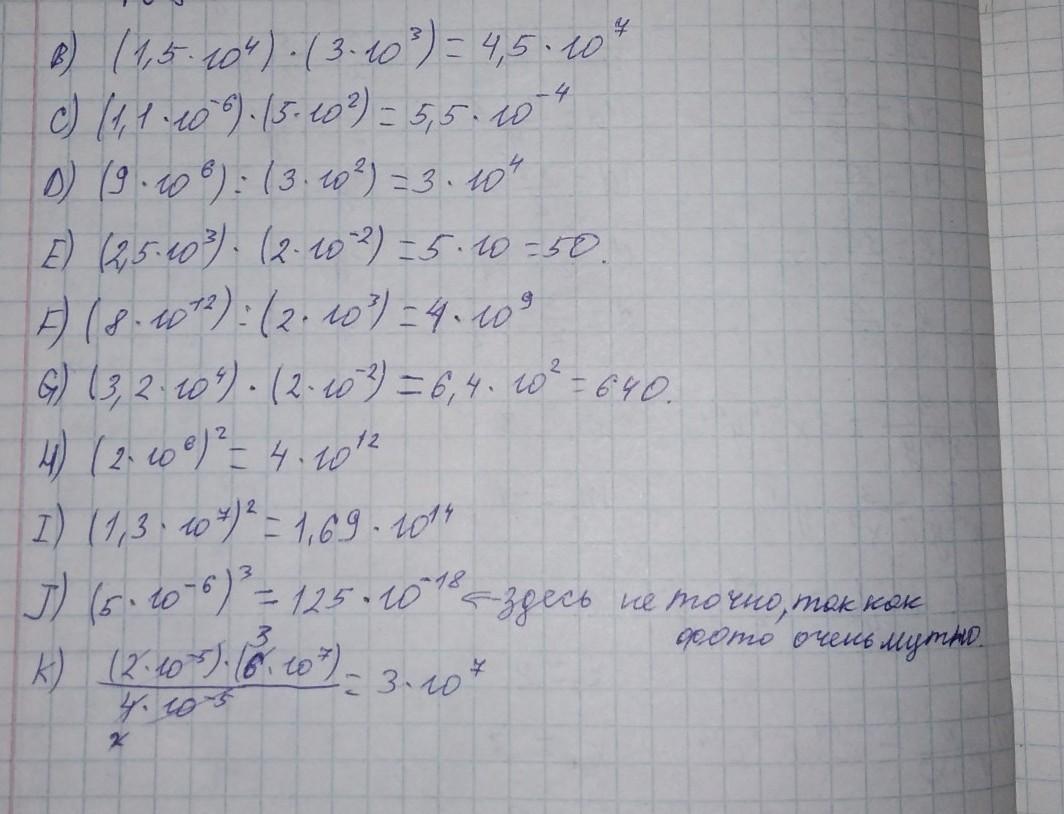 B) (1,5·10⁴)·(3·10³)=4,5·10⁷
C) (1,1·10⁻⁶)·(5·10²)=5,5·10⁻⁴
D) (9·10⁶):(3·10²)=3·10⁴
E) (2,5·10³)·(2·10⁻²)=5·10=50.
F) (8·10¹²):(2·10³)=4·10⁹
G) (3,2·10⁴)·(2·10⁻²)=6,4·10²=640.
H) (2·10⁶)²=4·10¹²
I) (1,3·10⁷)²=1,69·10¹⁴
J) (5·10⁻⁶)³=125·10⁻¹⁸ ← здесь не точно, так как
фото очень мутно.
3
K) (2·10⁻⁵)·(6·10⁷) = 3·10⁷
4·10⁻⁵